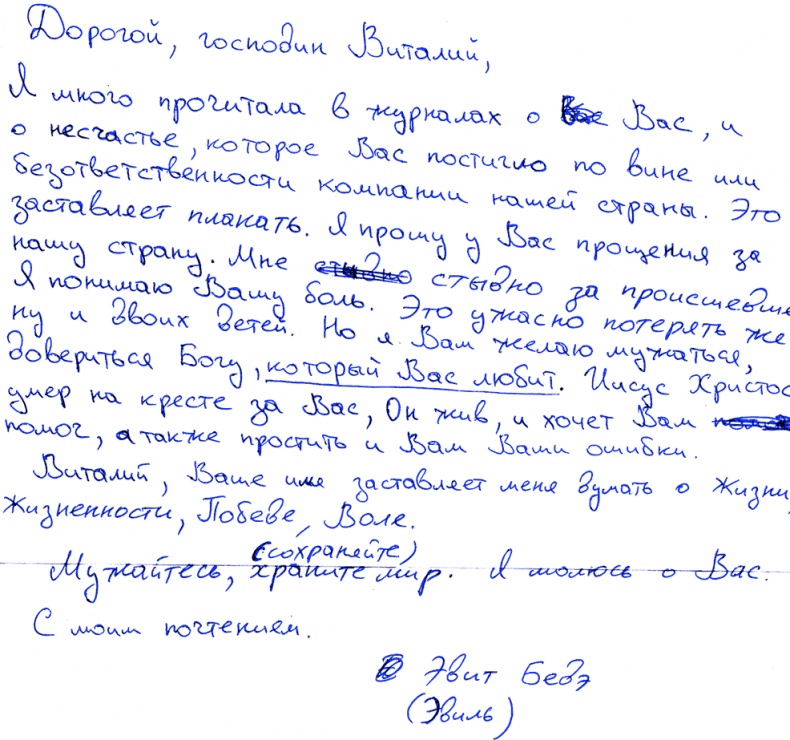 Дорогой, господин Виталий,
Я много прочитала в журналах о Вас, и
о несчастье, которое Вас постигло по вине или
безответственности компании нашей страны. Это
заставляет плакать. Я прошу у Вас прощения за
нашу страну. Мне стыдно за происшедше
Я понимаю Вашу боль. Это ужасно потерять же
ну и двоих детей. Но я Вам желаю мужаться,
довериться Богу, который Вас любит. Иисус Христос
умер на кресте за Вас, Он жив, и хочет Вам
помог, а также простить и Вам Ваши ошибки.
Виталий, Ваше имя заставляет меня думать о Жизни,
Жизненности, Победе, Воле.
(сохраняйте)
Мужайтесь, храните мир. Я молюсь о Вас.
С моим почтением.
Эвит Бедэ
(Эвиль)